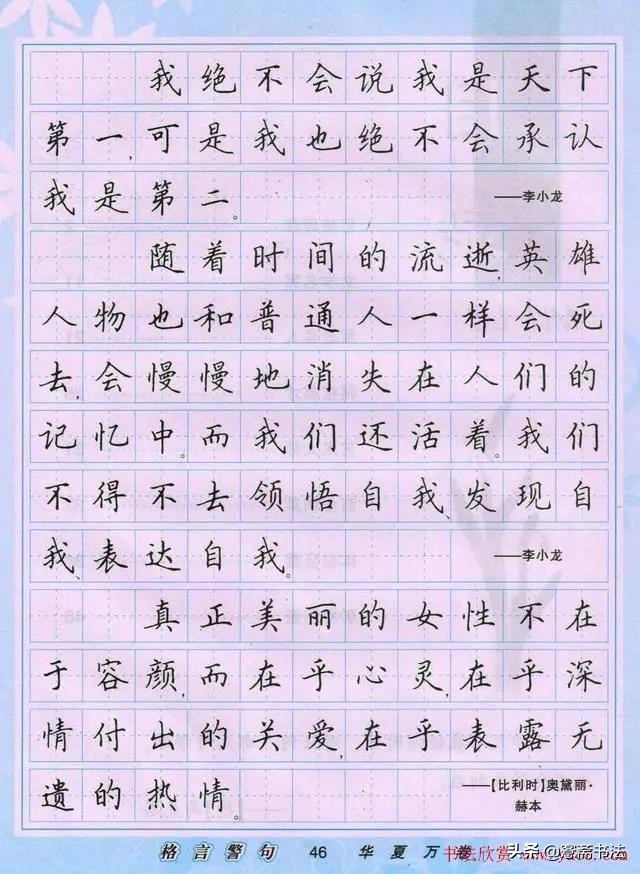 我绝不会说我是天下
第一,可是我也绝不会承认
我是第二。 ——李小龙
随着时间的流逝,英雄
人物也和普通人一样会死
去,会慢慢地消失在人们的
记忆中。而我们还活着。我们
不得不去领悟自我、发现自
我、表达自我。 ——李小龙
真正美丽的女性不在
于容颜,而在乎心灵,在乎深
情付出的关爱,在乎表露无
遗的热情。 ——【比利时】奥黛丽·
赫本
格言警句 46 华夏万卷
书法欣赏
头条